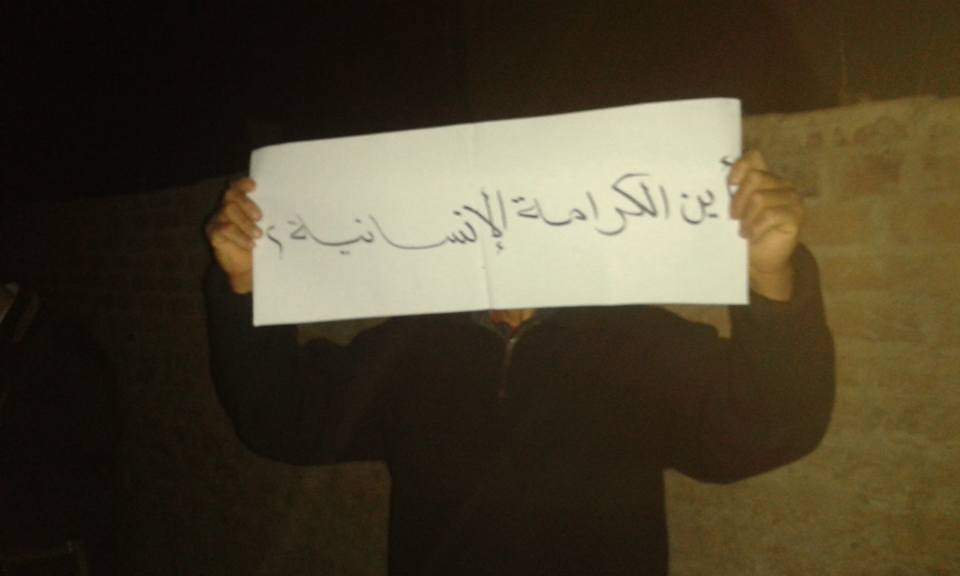 أين الكرامة الإنسانية؟